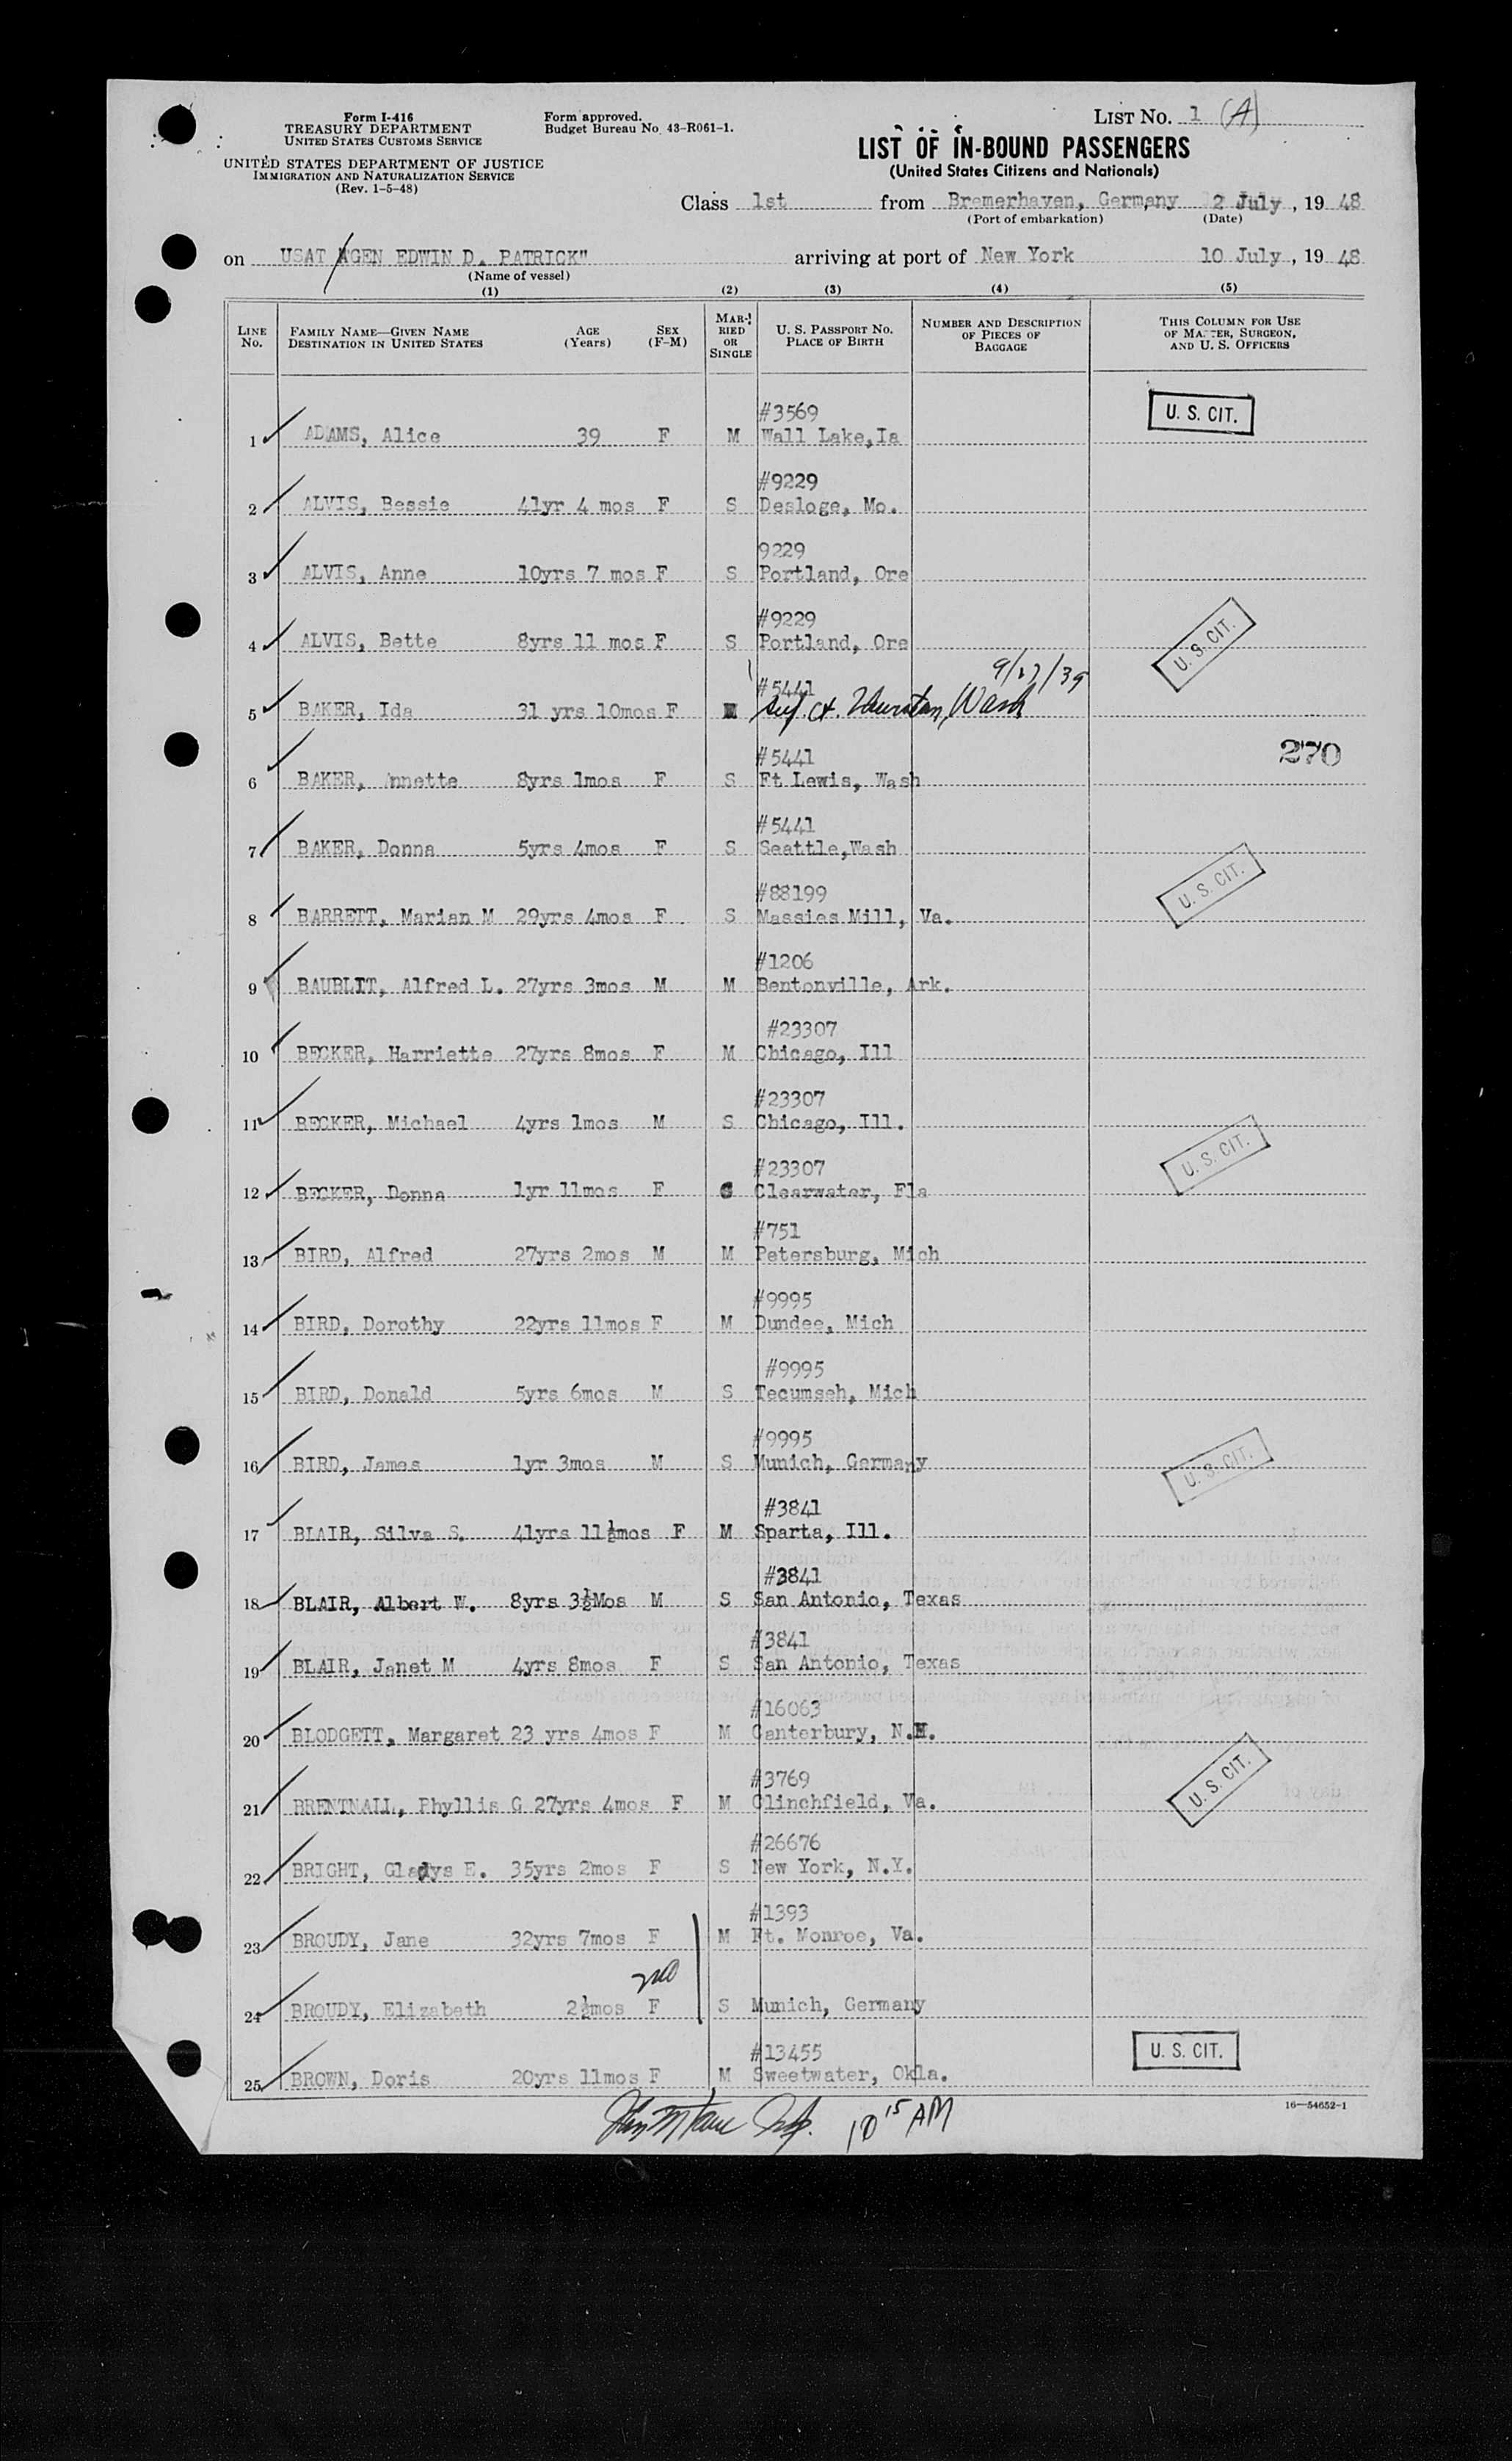 Form I-416
TREASURY DEPARTMENT
UNITED STATES CUSTOMS SERVICE
UNITED STATES DEPARTMENT OF JUSTICE
IMMIGRATION AND NATURALIZATION SERVICE
(Rev. 1-5-48)
Form approved.
Budget Bureau No. 43-R061-1.
LIST No. 1 (A)
LIST OF IN-BOUND PASSENGERS
(United States Citizens and Nationals)
Class 1st from Bremerhaven, Germany 2 July, 19 48
(Port of embarkation) (Date)
on USAT "GEN EDWIN D. PATRICK" arriving at port of New York 10 July, 19 48
(Name of vessel)
(1) (2) (3) (4) (5)
LINE No. FAMILY NAME—GIVEN NAME DESTINATION IN UNITED STATES AGE (Years) SEX (F-M) MARRIED OR SINGLE U. S. PASSPORT NO. PLACE OF BIRTH NUMBER AND DESCRIPTION OF PIECES OF BAGGAGE THIS COLUMN FOR USE OF MASTER, SURGEON, AND U. S. OFFICERS
#3569 U. S. CIT.
1 ADAMS, Alice 39 F M Wall Lake,Ia
#9229
2 ALVIS, Bessie 41yr 4 mos F S Desloge, Mo.
9229
3 ALVIS, Anne 10yrs 7 mos F S Portland, Ore
#9229
4 ALVIS, Bette 8yrs 11 mos F S Portland, Ore U. S. CIT.
#5441 9/27/39
5 BAKER, Ida 31 yrs 10mos F ct. Thurston, Wash
#5441 270
6 BAKER, Annette 8yrs 1mos F S Ft Lewis, Wash
#5441
7 BAKER, Donna 5yrs 4mos F S Seattle,Wash
#88199 U. S. CIT.
8 BARRETT, Marian M 29yrs 4mos F S Massies Mill, Va.
#1206
9 BAUBLIT, Alfred L. 27yrs 3mos M M Bentonville, Ark.
#23307
10 BECKER, Harriette 27yrs 8mos F M Chicago, Ill
#23307
11 BECKER, Michael 4yrs 1mos M S Chicago, Ill.
#23307 U. S. CIT.
12 BECKER, Donna 1yr 11mos F S Clearwater, Fla
#751
13 BIRD, Alfred 27yrs 2mos M M Petersburg, Mich
#9995
14 BIRD, Dorothy 22yrs 11mos F M Dundee, Mich
#9995
15 BIRD, Donald 5yrs 6mos M S Tecumseh, Mich
#9995
16 BIRD, James 1yr 3mos M S Munich, Germany U. S. CIT.
#3841
17 BLAIR, Silva S. 41yrs 11½mos F M Sparta, Ill.
#3841
18 BLAIR, Albert W. 8yrs 3½Mos M S San Antonio, Texas
#3841
19 BLAIR, Janet M 4yrs 8mos F S San Antonio, Texas
#16063
20 BLODGETT, Margaret 23 yrs 4mos F M Canterbury, N.H.
#3769 U. S. CIT.
21 BRENTNALL, Phyllis G 27yrs 4mos F M Clinchfield, Va.
#26676
22 BRIGHT, Gladys E. 35yrs 2mos F S New York, N.Y.
#1393
23 BROUDY, Jane 32yrs 7mos F M Ft. Monroe, Va.
24 BROUDY, Elizabeth 2½mos F S Munich, Germany
#13455 U. S. CIT.
25 BROWN, Doris 20yrs 11mos F M Sweetwater, Okla.
16—54652-1
10 15 AM